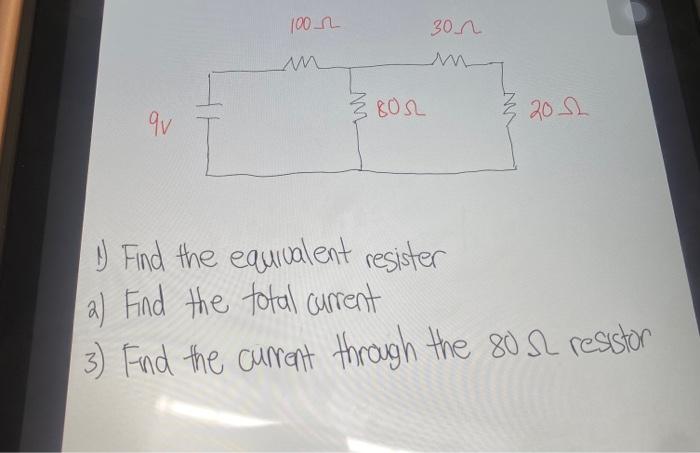 100Ω 30Ω
9v 80Ω 20Ω
1) Find the equivalent resister
2) Find the total current
3) Find the current through the 80 Ω resistor